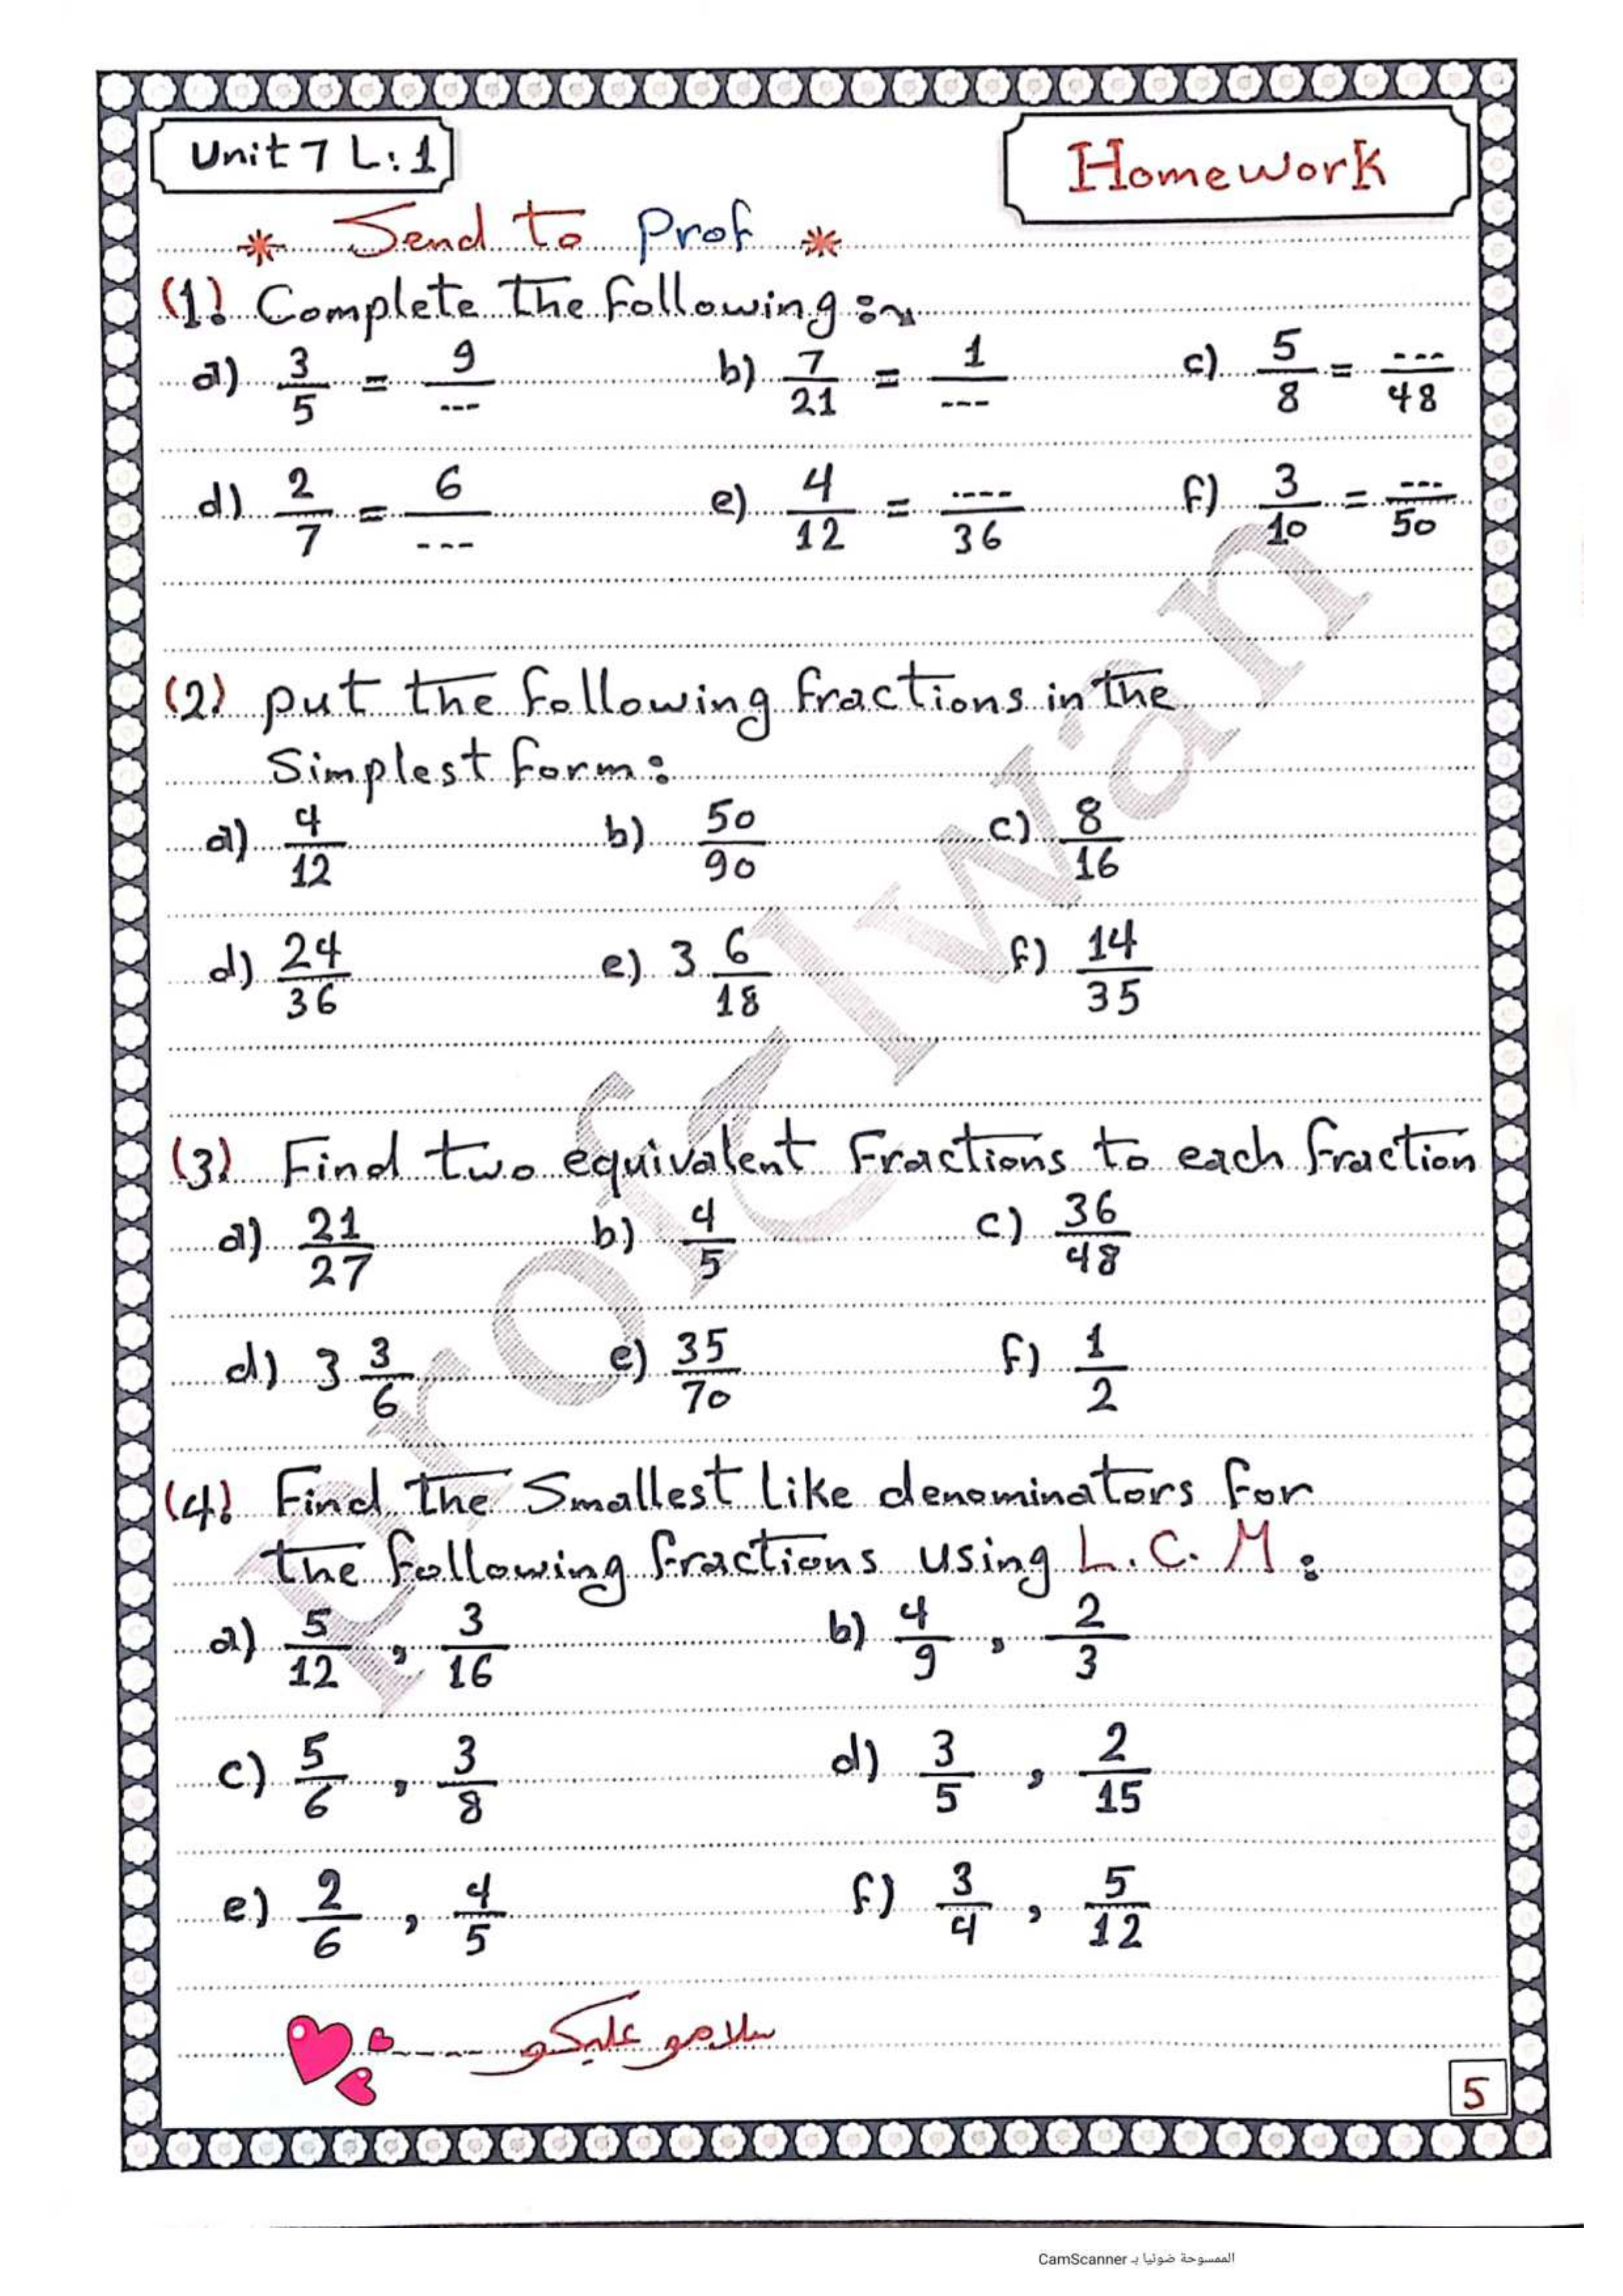 Unit 7 L: 1
Homework
* Send to Prof *
(1) Complete the following:
a) 3/5 = 9/--- b) 7/21 = 1/--- c) 5/8 = ---/48
d) 2/7 = 6/--- e) 4/12 = ----/36 f) 3/10 = ---/50
(2) put the following fractions in the
Simplest form:
a) 4/12 b) 50/90 c) 8/16
d) 24/36 e) 3 6/18 f) 14/35
(3) Find two equivalent Fractions to each fraction
a) 21/27 b) 4/5 c) 36/48
d) 3 3/6 e) 35/70 f) 1/2
(4) Find the Smallest like denominators for
the following fractions using L.C.M:
a) 5/12 , 3/16 b) 4/9 , 2/3
c) 5/6 , 3/8 d) 3/5 , 2/15
e) 2/6 , 4/5 f) 3/4 , 5/12
سلامو عليكو
5
الممسوحة ضوئيا بـ CamScanner